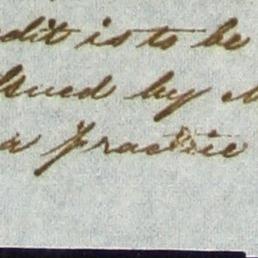 dit is to be
ssued by M
a practice